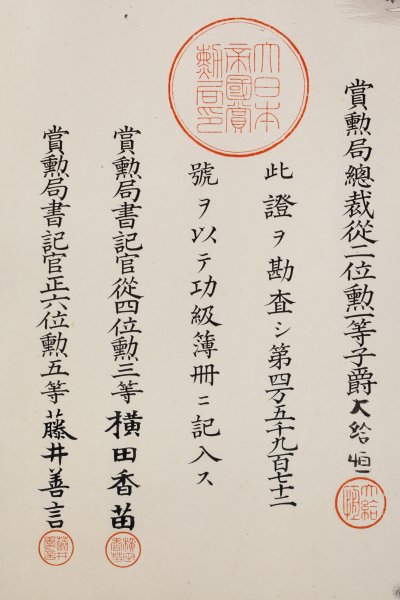 賞勲局總裁從二位勲一等子爵大給恒
此證ヲ勘査シ第四万五千九百七十二
號ヲ以テ功級簿冊ニ記入ス
賞勲局書記官從四位勲三等 横田香苗
賞勲局書記官正六位勲五等 藤井善言
大日本帝國賞勲局印
大給恒
横田香苗
藤井善言